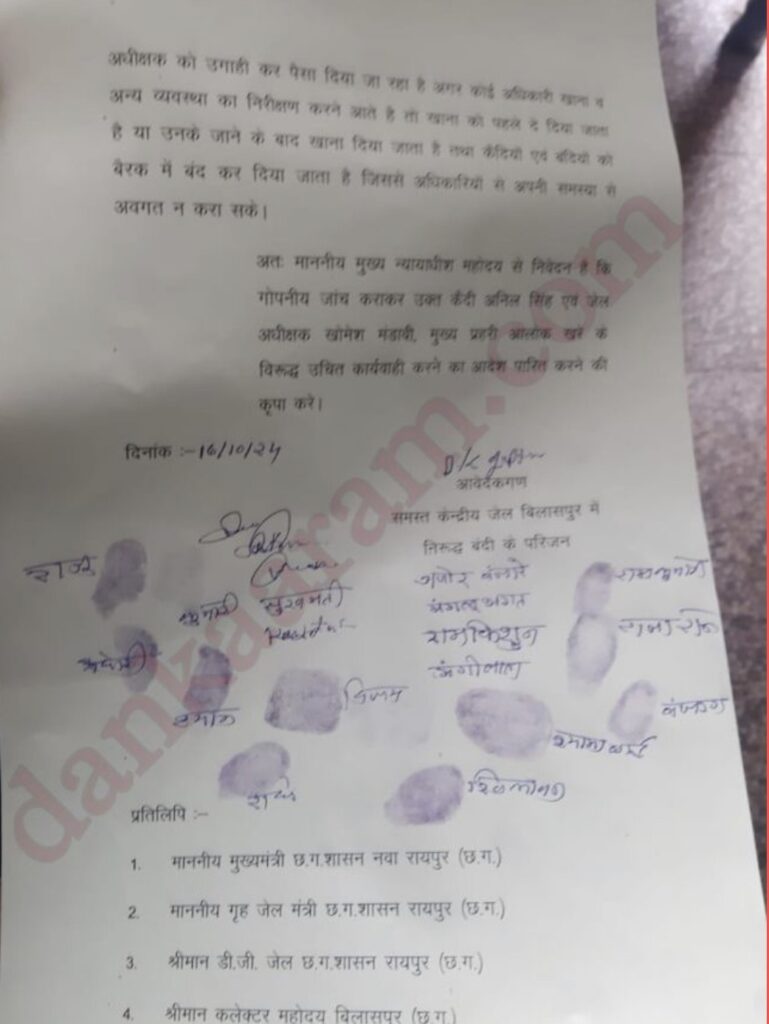 अधीक्षक को उगाही कर पैसा दिया जा रहा है अगर कोई अधिकारी खाना व
अन्य व्यवस्था का निरीक्षण करने आते है तो खाना को पहले दे दिया जाता
है या उनके जाने के बाद खाना दिया जाता है तथा कैदियों एवं बंदियों को
बैरक में बंद कर दिया जाता है जिससे अधिकारियों से अपनी समस्या से
अवगत न करा सके।
अतः माननीय मुख्य न्यायाधीश महोदय से निवेदन है कि
गोपनीय जांच कराकर उक्त कैदी अनिल सिंह एवं जेल
अधीक्षक खोमेश मंडावी, मुख्य प्रहरी आलोक खरे के
विरूद्ध उचित कार्यवाही करने का आदेश पारित करने की
कृपा करे।
दिनांक :-16/10/24
आवेदकगण
समस्त केन्द्रीय जेल बिलासपुर में
निरूद्ध बंदी के परिजन
सुखमती
रामकिशुन
प्रतिलिपि :-
1. माननीय मुख्यमंत्री छ.ग.शासन नवा रायपुर (छ.ग.)
2. माननीय गृह जेल मंत्री छ.ग.शासन रायपुर (छ.ग.)
3. श्रीमान डी.जी. जेल छ.ग.शासन रायपुर (छ.ग.)
4. श्रीमान कलेक्टर महोदय बिलासपुर (छ.ग.)
dankaaram.com